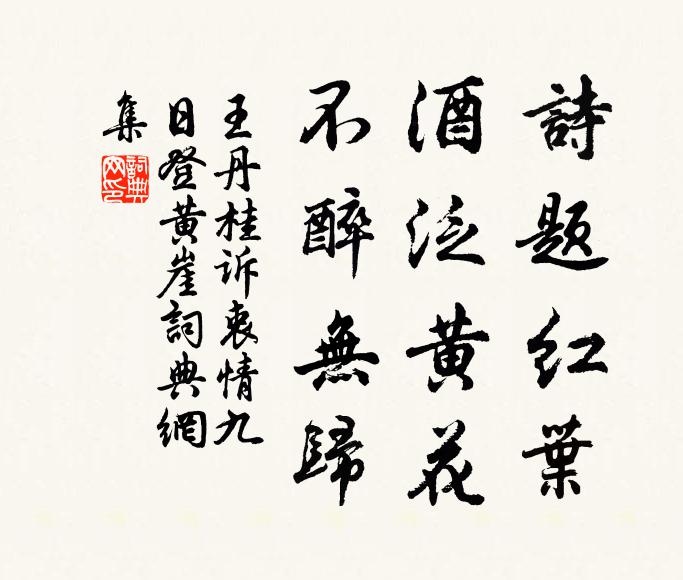 詩题红葉
酒泛黄花
不醉無歸
王丹桂訴衷情九
日登黄崖詞典網
集
詞典网印